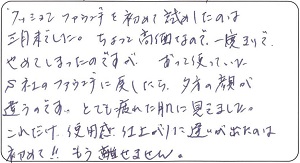 クッションファウンデを初めて試めしたのは
三月末でした。ちょっと高価なので、一度きりで
やめてしまったのですが ずっと使っていた
S社のファウンデに戻したら、夕方の顔が
違うのです。とても疲れた肌に見えました。
これだけ、使用感 仕上がりに違いが出たのは
初めて!! もう離せません。